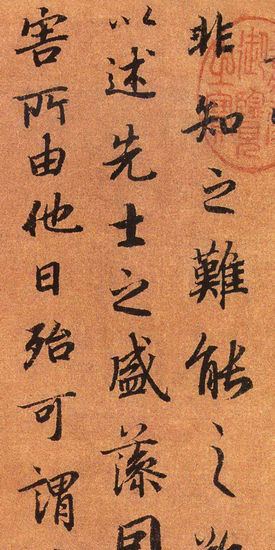 非知之難能之難
以述先士之盛藻因
害所由他日殆可謂